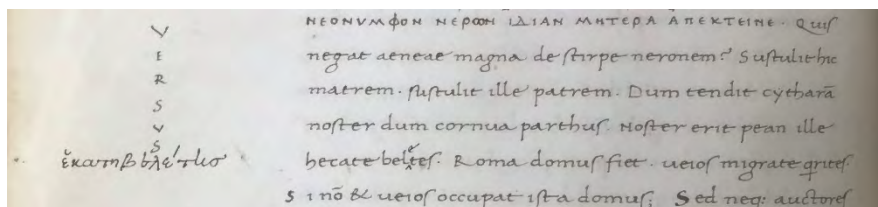 VERSVS
ΝΕΟΝVΜΦΟΝ ΝΕΡωΝ ΙΔΙΑΝ ΜΗΤΕΡΑ ΑΠΕΚΤΕΙΝΕ. Quiſ
negat aeneae magna de ſtirpe neronem? Suſtulit hic
matrem. ſuſtulit ille patrem. Dum tendit cytharā
noſter dum cornua parthuſ. Noſter erit pean ille
hecate beleteſ. Roma domuſ fiet. ueioſ migrate qriteſ
Si nō & ueioſ occupat iſta domuſ; Sed neq: auctoreſ